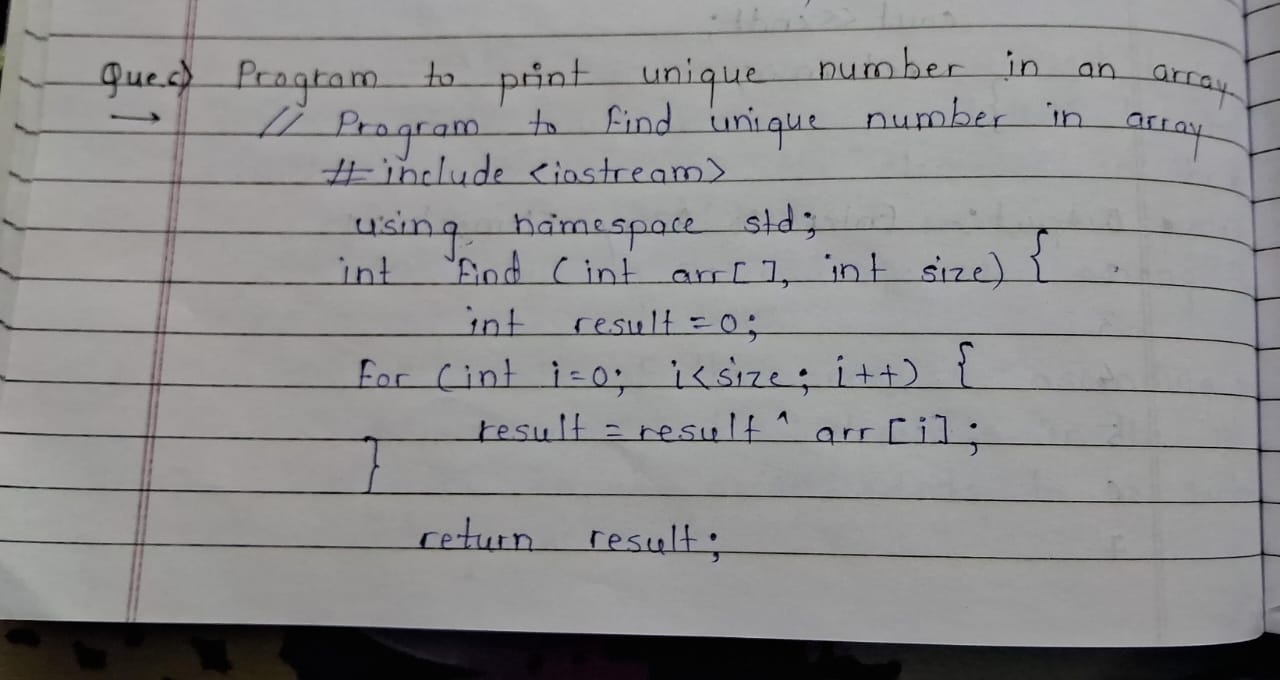 Que.c) Program to print unique number in an array
→ // Program to find unique number in array
#include <iostream>
using namespace std;
int find (int arr[], int size) {
int result = 0;
for (int i=0; i<size; i++) {
result = result ^ arr[i];
}
return result;